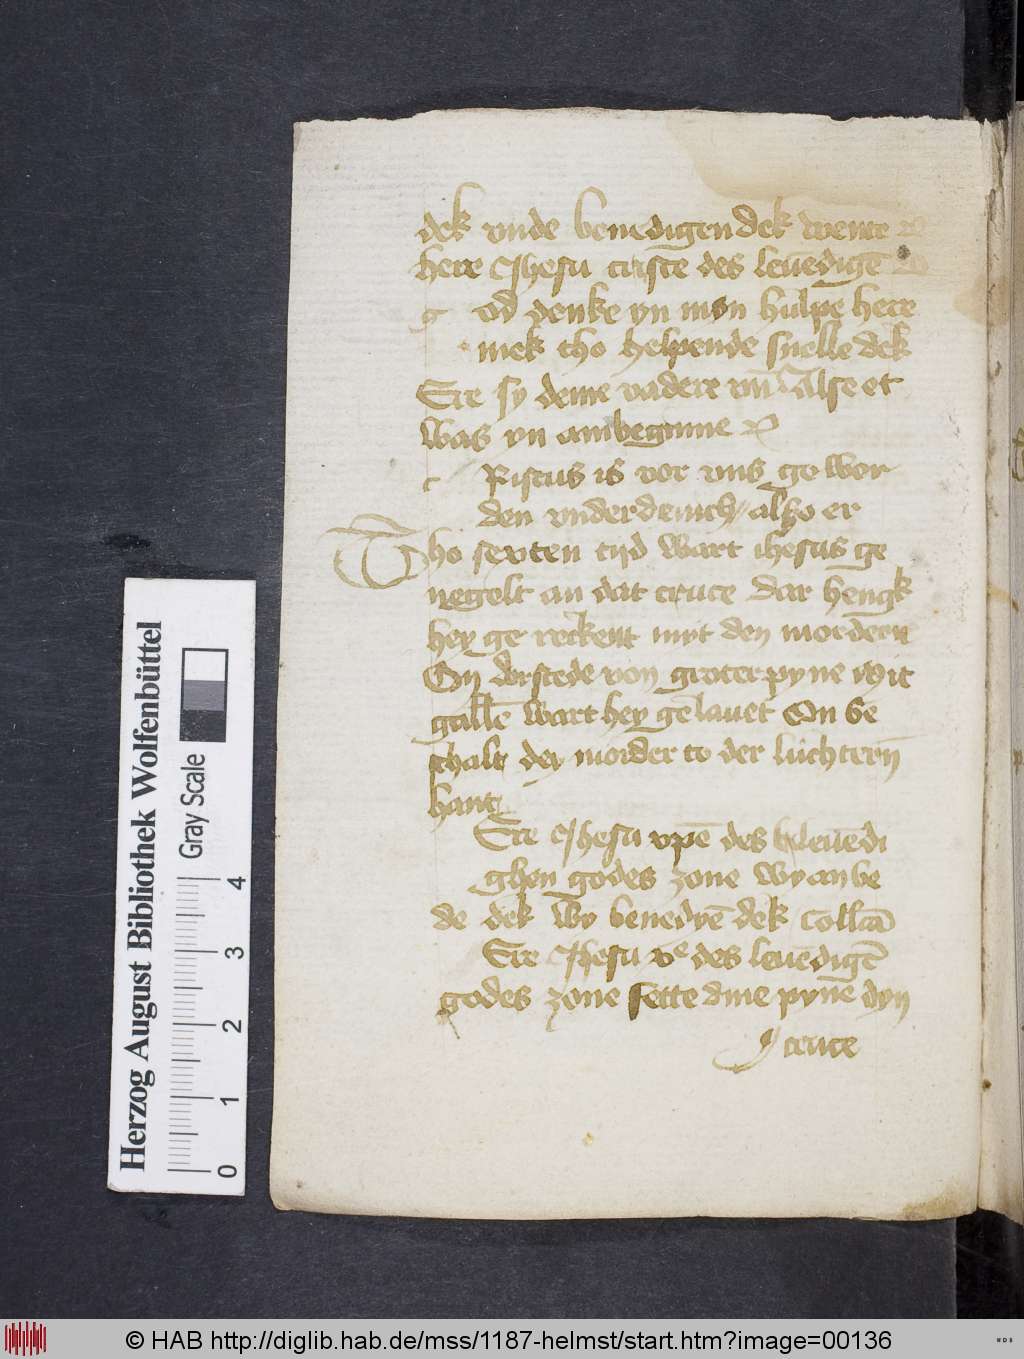 dek vnde benedigen dek wente
here Jhesu criste des leuēdigē
od denke yn myn hulpe here
mek tho helpende snelle dek
Ere sy deme vadere vn̄ Alse et
was yn ambeginne
Ristus is vor vns gewor
den vnderdenich also er
Tho sexten tijd wart ihesus ge
negelt an dat cruce dar hengk
hey ge rekent myt den mordern
On dorstede von groter pyne Mit
gallē wart hey gelauet On be
schalt dey morder to der luchtern̄
hant
Ere Jhesu xpē des leuēdi
ghen godes zone wy anbe
de dek wy benedyē dek Collcā
Ere Jhesu xe des leuēdigē
godes zone sette dine pynē dyn
cruce
Herzog August Bibliothek Wolfenbüttel
Gray Scale
0 1 2 3 4
© HAB http://diglib.hab.de/mss/1187-helmst/start.htm?image=00136